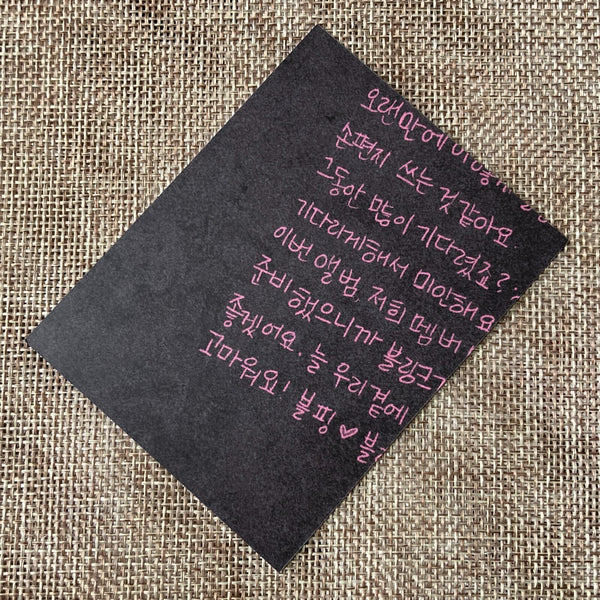 오랜만에
손편지 쓰는 것 같아요
그동안 많이 기다렸죠?
기다리게해서 미안해요
이번 앨범, 저희 멤버
준비했으니까 블링크
좋겠어요. 늘 우리곁에
고마워요! 블핑 ♥ 블